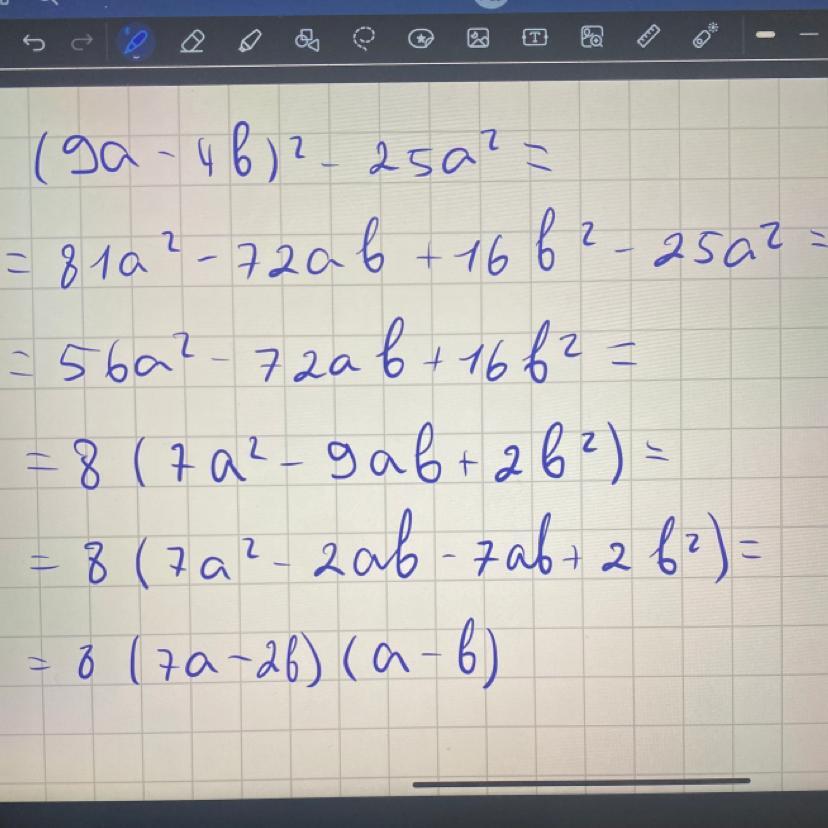 (9a - 4b)² - 25a² =
= 81a² - 72ab + 16b² - 25a² =
= 56a² - 72ab + 16b² =
= 8 (7a² - 9ab + 2b²) =
= 8 (7a² - 2ab - 7ab + 2b²) =
= 8 (7a - 2b) (a - b)